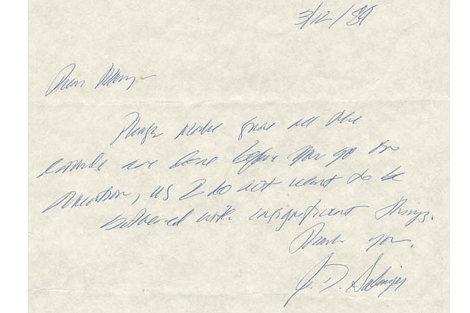 3/12/89
Dear
Please make sure all the
errands are done before you go on
vacation, as I do not want to be
bothered with insignificant things.
Thank you.
J. D. Salinger